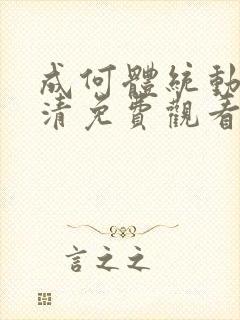 成何體統動
清免費觀看
言之之